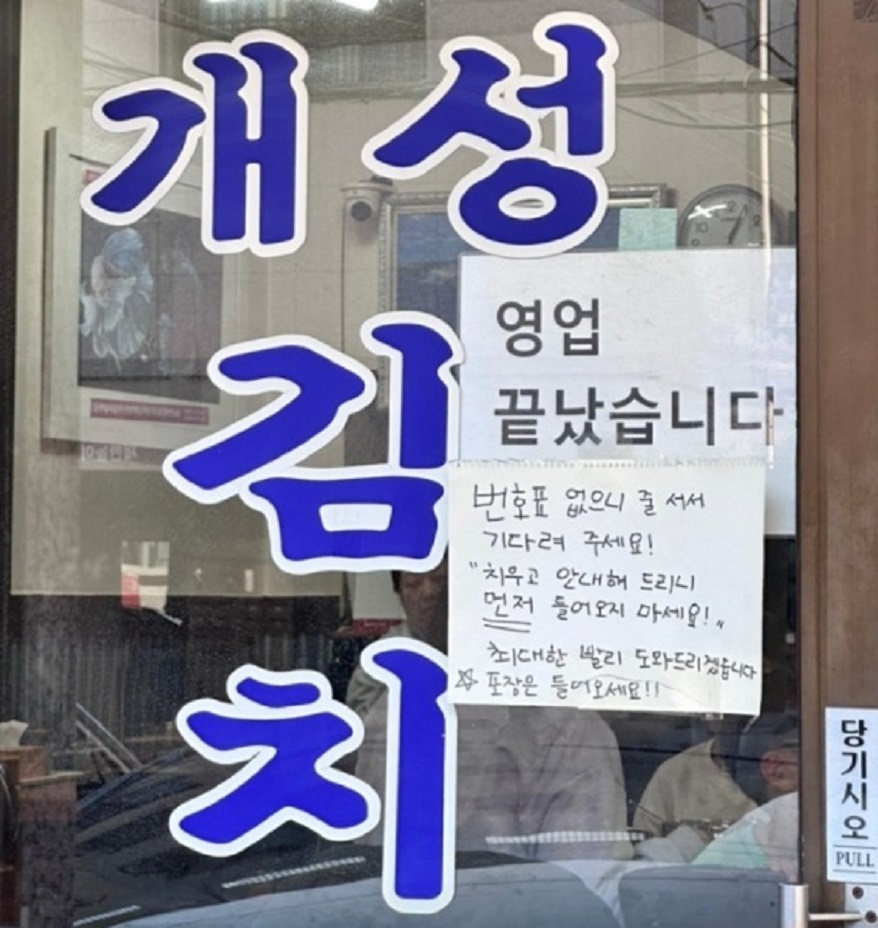 개성
김
치
영업
끝났습니다
번호표 없으니 줄 서서
기다려 주세요!
"치우고 안내해 드리니
먼저 들어오지 마세요!"
최대한 빨리 도와드리겠습니다
☆ 포장은 들어오세요!!
당기시오
PULL